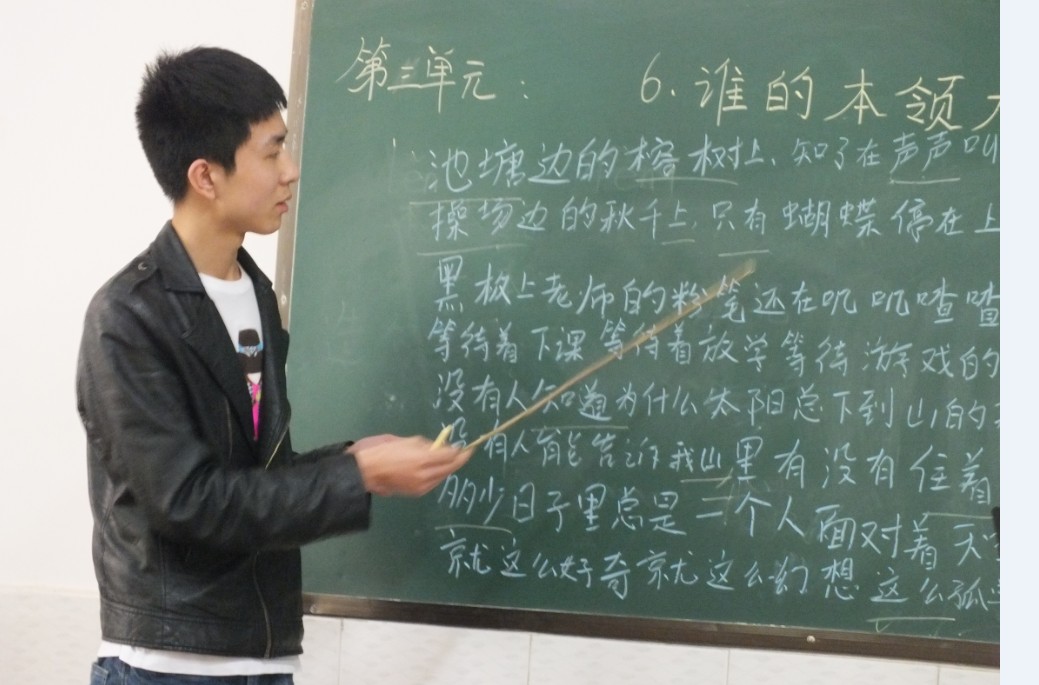 第三单元： 6.谁的本领
池塘边的榕树上，知了在声声叫
操场边的秋千上，只有蝴蝶停在上
黑板上老师的粉笔还在叽叽喳喳
等待着下课等待着放学等待游戏的
没有人知道为什么太阳总下到山的
没有人能告诉我山里有没有住着
多少日子里总是一个人面对着天
就这么好奇就这么幻想这么孤